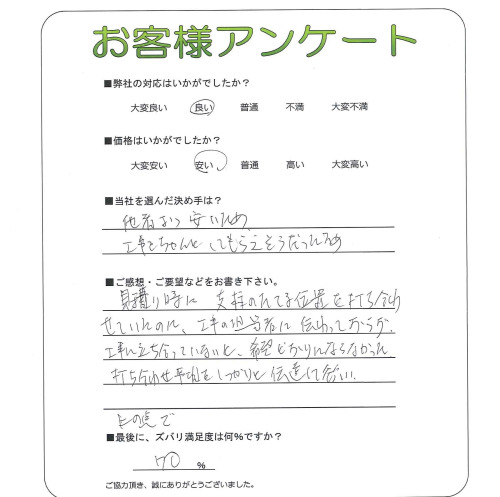 お客様アンケート
■弊社の対応はいかがでしたか？
大変良い 良い 普通 不満 大変不満
■価格はいかがでしたか？
大変安い 安い 普通 高い 大変高い
■当社を選んだ決め手は？
他者より安いため
工事をちゃんとしてもらえそうだったため
■ご感想・ご要望などをお書き下さい。
見積り時に 支持のたてる位置を打ち合わ
せていたのに、工事の担当者に伝わっておらず、
工事に立ち合っていないと、希望どおりにならなかった
打ち合わせ事項をしっかりと伝達して欲しい
上の点で
■最後に、ズバリ満足度は何%ですか？
70 %
ご協力頂き、誠にありがとうございました。